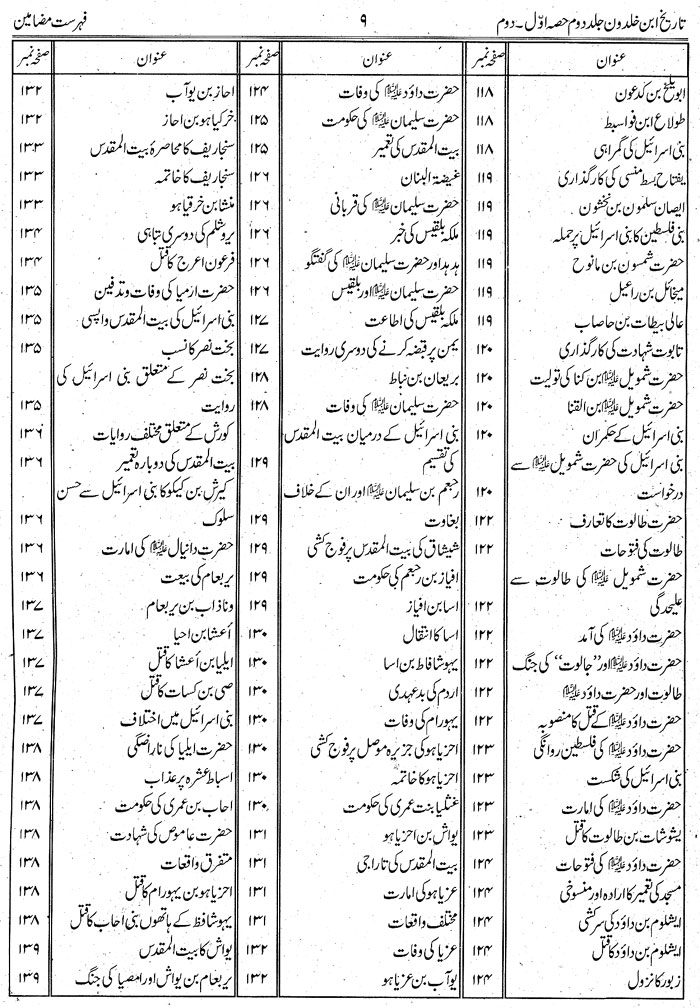 تاریخ ابن خلدون جلد دوم حصہ اوّل - دوم ۹ فہرست مضامین
عنوان صفحہ نمبر
ابو ملیخ بن کدعون ۱۱۸
طولاغ ابن فواسبط ۱۱۸
بنی اسرائیل کی گمراہی ۱۱۸
یفتاح بسط منسی کی کارگذاری ۱۱۹
ایصان سلمون بن نحشون ۱۱۹
بنی فلسطین کا بنی اسرائیل پر حملہ ۱۱۹
حضرت شمسون بن مانوح ۱۱۹
میخائل بن راعیل ۱۱۹
عالی بیطات بن حاصاب ۱۱۹
تابوت شہادت کی کارگذاری ۱۲۰
حضرت شمویل علیہ السلام ابن کنا کی تولیت ۱۲۰
حضرت شمویل علیہ السلام ابن القنا ۱۲۰
بنی اسرائیل کے حکمران ۱۲۰
بنی اسرائیل کی حضرت شمویل علیہ السلام سے
درخواست ۱۲۰
حضرت طالوت کا تعارف ۱۲۲
طالوت کی فتوحات ۱۲۲
حضرت شمویل علیہ السلام کی طالوت سے
علیحدگی ۱۲۲
حضرت داؤد علیہ السلام کی آمد ۱۲۲
حضرت داؤد علیہ السلام اور "جالوت" کی جنگ ۱۲۲
طالوت اور حضرت داؤد علیہ السلام ۱۲۲
حضرت داؤد علیہ السلام کے قتل کا منصوبہ ۱۲۲
حضرت داؤد علیہ السلام کی فلسطین روانگی ۱۲۳
بنی اسرائیل کی شکست ۱۲۳
حضرت داؤد علیہ السلام کی امارت ۱۲۳
یشوشات بن طالوت کا قتل ۱۲۳
حضرت داؤد علیہ السلام کی فتوحات ۱۲۴
مسجد کی تعمیر کا ارادہ اور منسوخی ۱۲۴
ایشلوم بن داؤد کی سرکشی ۱۲۴
ایشلوم بن داؤد کا قتل ۱۲۴
زبور کا نزول ۱۲۴
عنوان صفحہ نمبر
حضرت داؤد علیہ السلام کی وفات ۱۲۴
حضرت سلیمان علیہ السلام کی حکومت ۱۲۵
بیت المقدس کی تعمیر ۱۲۵
غیضۃ البنان ۱۲۶
حضرت سلیمان علیہ السلام کی قربانی ۱۲۶
ملکہ بلقیس کی خبر ۱۲۶
ہدہد اور حضرت سلیمان علیہ السلام کی گفتگو ۱۲۶
حضرت سلیمان علیہ السلام اور بلقیس ۱۲۶
ملکہ بلقیس کی اطاعت ۱۲۷
یمن پر قبضہ کرنے کی دوسری روایت ۱۲۷
یربعان بن نباط ۱۲۸
حضرت سلیمان علیہ السلام کی وفات ۱۲۸
بنی اسرائیل کے درمیان بیت المقدس
کی تقسیم ۱۲۹
رجعم بن سلیمان علیہ السلام اور ان کے خلاف
بغاوت ۱۲۹
شیشاق کی بیت المقدس پر فوج کشی ۱۲۹
افیاز بن رجعم کی حکومت ۱۲۹
اسا بن افیاز ۱۲۹
اسا کا انتقال ۱۳۰
یہوشافاط بن اسا ۱۳۰
اردم کی بدعہدی ۱۳۰
یہورام کی وفات ۱۳۰
احزیاہو کی جزیرہ موصل پر فوج کشی ۱۳۰
احزیاہو کا خاتمہ ۱۳۰
عثلیا بنت عمری کی حکومت ۱۳۰
یواش بن احزیاہو ۱۳۱
بیت المقدس کی تاراجی ۱۳۱
عزیاہو کی امارت ۱۳۱
مختلف واقعات ۱۳۱
عزیا کی وفات ۱۳۲
یوآب بن عزیاہو ۱۳۲
عنوان صفحہ نمبر
احاز بن یوآب ۱۳۲
خرکیاہو بن احاز ۱۳۲
سنجاریف کا محاصرۂ بیت المقدس ۱۳۳
سنجاریف کا خاتمہ ۱۳۳
منشا بن خرقیاہو ۱۳۳
یروشلم کی دوسری تباہی ۱۳۴
فرعون اعرج کا قتل ۱۳۴
حضرت ارمیا کی وفات و تدفین ۱۳۵
بنی اسرائیل کی بیت المقدس واپسی ۱۳۵
بخت نصر کا نسب ۱۳۵
بخت نصر کے متعلق بنی اسرائیل کی
روایت ۱۳۵
کورش کے متعلق مختلف روایات ۱۳۶
بیت المقدس کی دوبارہ تعمیر ۱۳۶
کیرش بن کیکو کا بنی اسرائیل سے حسن
سلوک ۱۳۶
حضرت دانیال علیہ السلام کی امارت ۱۳۶
یربعام کی بیعت ۱۳۶
وناذاب بن یربعام ۱۳۷
أعشا بن احیا ۱۳۷
ایلیا بن أعشا کا قتل ۱۳۷
صی بن کسات کا قتل ۱۳۷
بنی اسرائیل میں اختلاف ۱۳۷
حضرت ایلیا کی ناراضگی ۱۳۸
اسباط عشرہ پر عذاب ۱۳۸
احاب بن عمری کی حکومت ۱۳۸
حضرت عاموص کی شہادت ۱۳۸
متفرق واقعات ۱۳۸
احزیاہو بن یہورام کا قتل ۱۳۸
یہوشافظ کے ہاتھوں بنی أحاب کا قتل ۱۳۸
یواش کا بیت المقدس ۱۳۹
یربعام بن یواش اور امصیا کی جنگ ۱۳۹